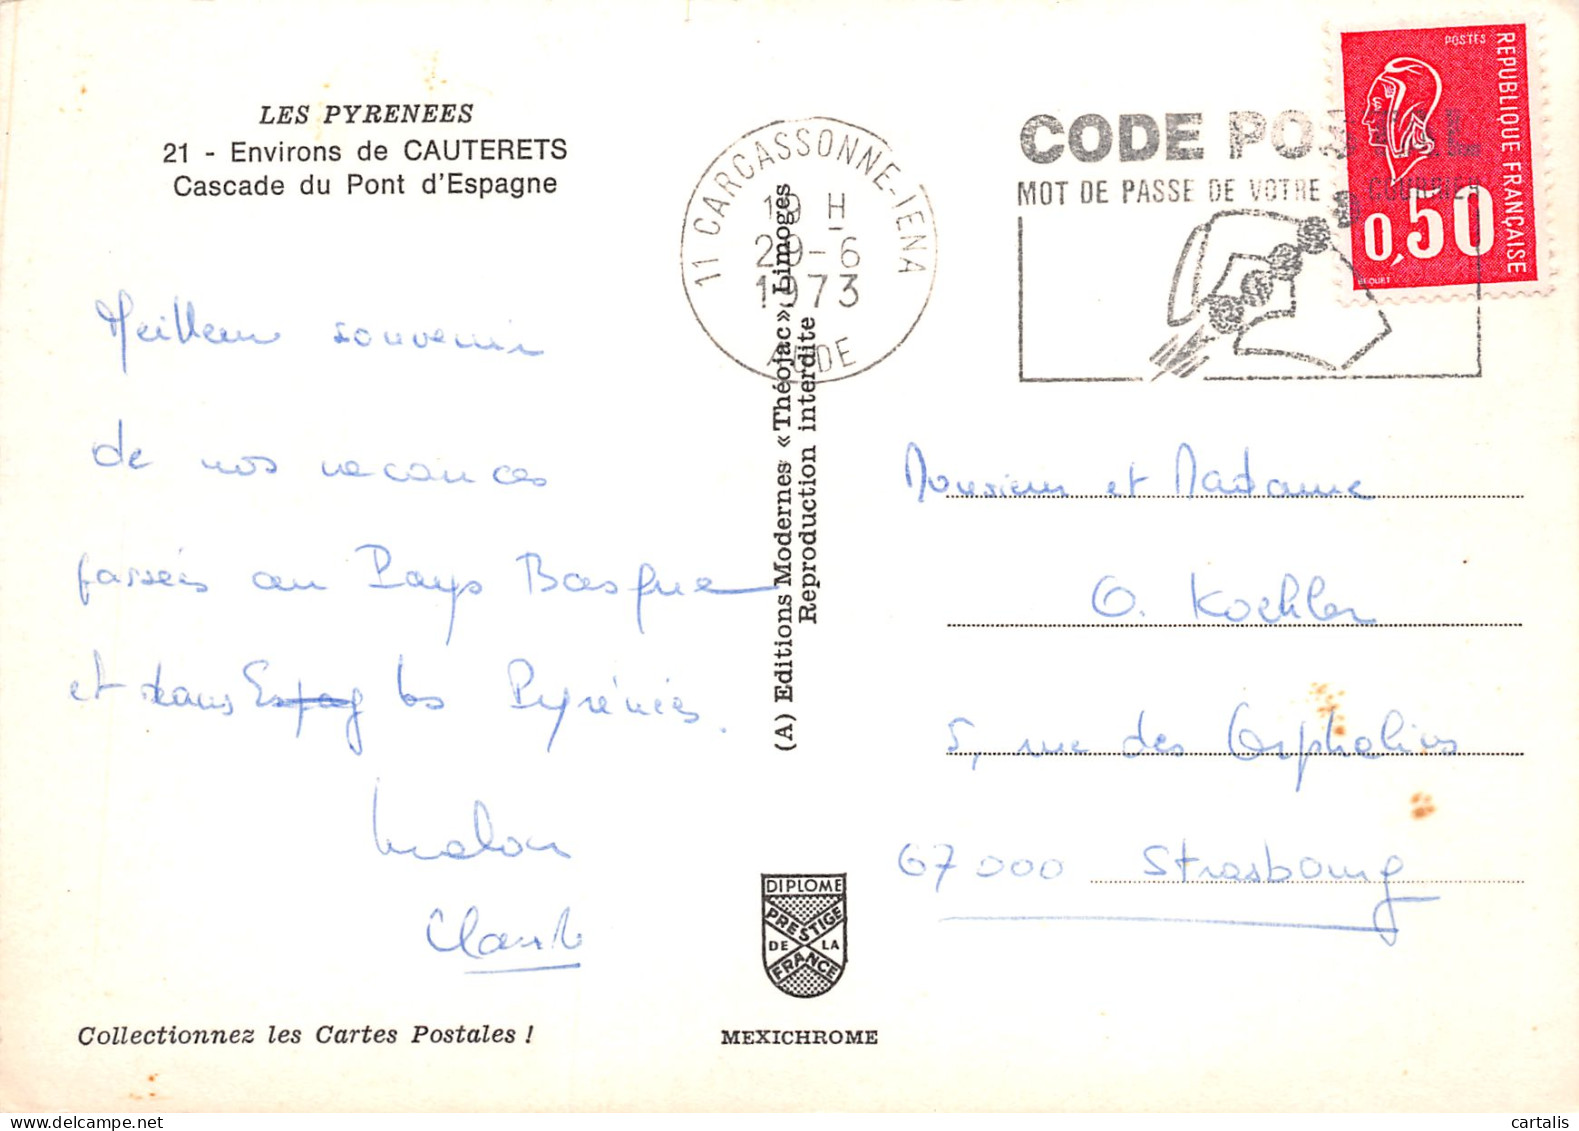 LES PYRENEES
21 - Environs de CAUTERETS
Cascade du Pont d'Espagne
Meilleur souvenir
de nos vacances
passées au Pays Basque
et dans Espag les Pyrénées.
Collectionnez les Cartes Postales !
11 CARCASSONNE-IENA
19 H
29-6
1973
AUDE
(A) Editions Modernes «Théojac», Limoges
Reproduction interdite
DIPLOME
PRESTIGE
DE LA
FRANCE
MEXICHROME
CODE POSTAL
MOT DE PASSE DE VOTRE COURRIER
POSTES
REPUBLIQUE FRANÇAISE
0,50
BEQUET
Monsieur et Madame
O. Koehler
5, rue des Orphelins
67000 Strasbourg
cartalis